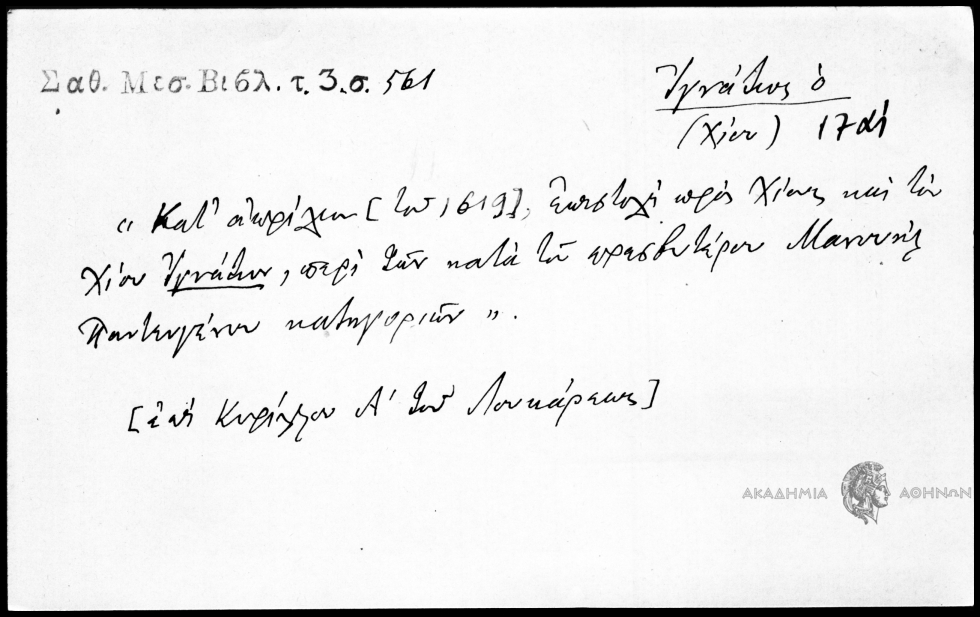 Σαθ. Μεσ. Βιβλ. τ. 3. σ. 561
Ἰγνάτιος ὁ
(Χίου) 17 αἰ
« Κατ' ἀπρίλιον [τοῦ 1619], ἐπιστολὴ πρὸς Χίους καὶ τὸν
Χίου Ἰγνάτιον, περὶ τῶν κατὰ τοῦ πρεσβυτέρου Μανουὴλ
Παντευγένου κατηγοριῶν ».
[ἐπὶ Κυρίλλου Α' τοῦ Λουκάρεως]
ΑΚΑΔΗΜΙΑ ΑΘΗΝΩΝ